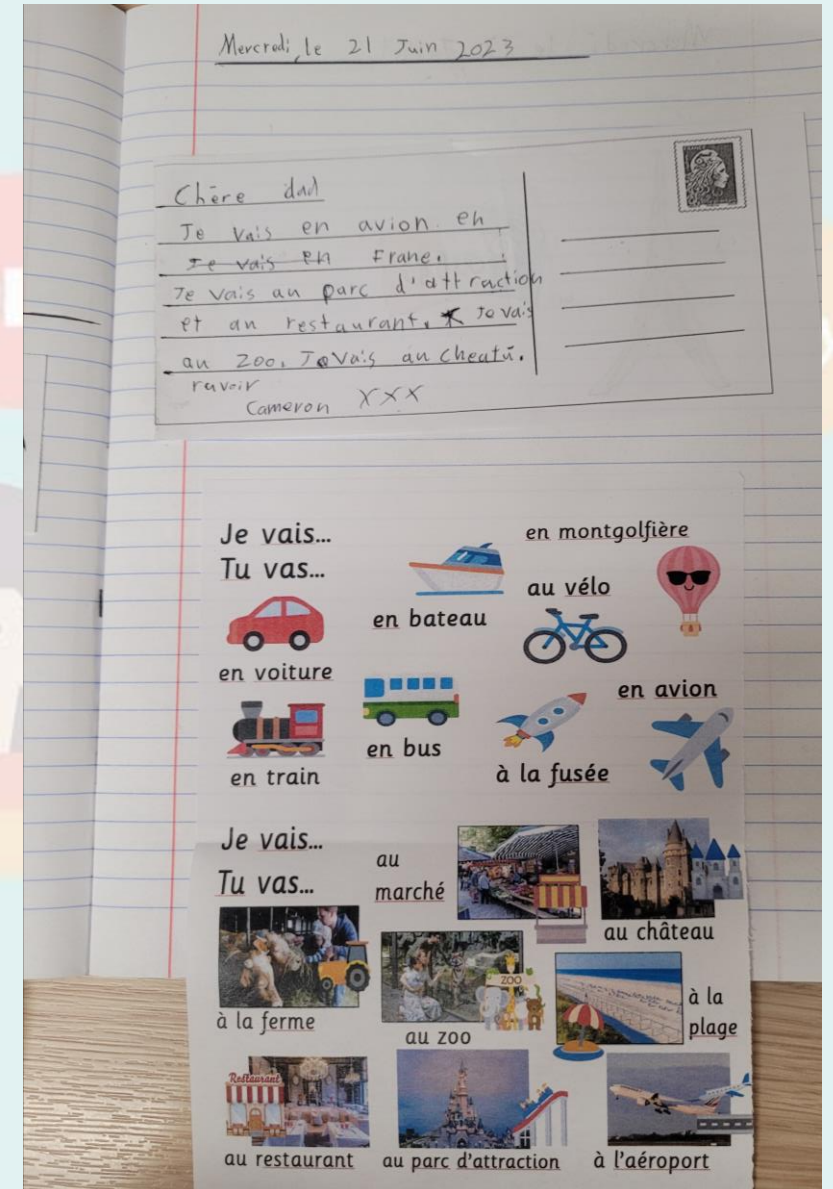 Mercredi, le 21 Juin 2023
Chère dad
Je vais en avion. en
Je vais en Frane.
Je vais au parc d'attraction
et au restaurant. Je vais
au zoo. Je vais au cheatû.
ravoir
Cameron XXX
Je vais...
Tu vas...
en montgolfière
au vélo
en bateau
en voiture
en avion
en bus
à la fusée
en train
Je vais...
Tu vas...
au
marché
au château
à la ferme
ZOO
au zoo
à la
plage
Restaurant
au restaurant
au parc d'attraction
à l'aéroport